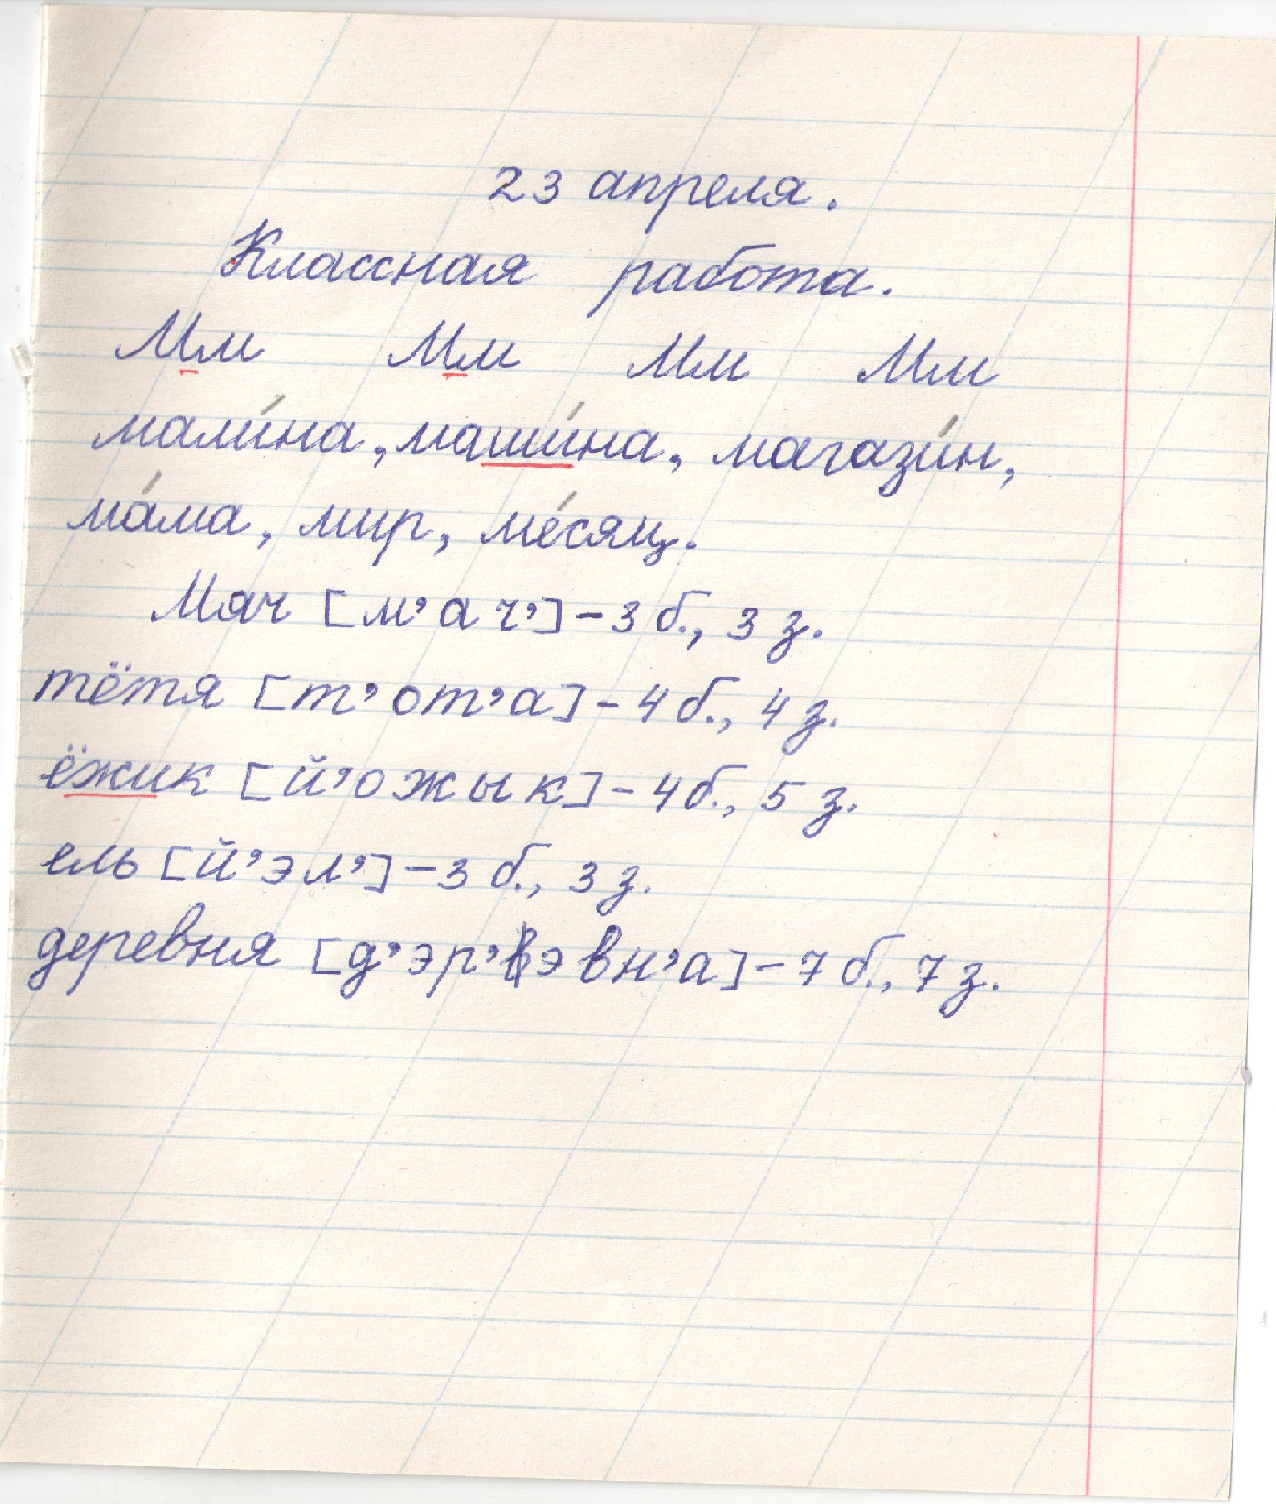 23 апреля.
Классная работа.
Мм Мм Мм Мм
мали́на, маши́на, магази́н,
ма́ма, мир, ме́сяц.
Мяч [м’ а ч’] – 3 б., 3 з.
тётя [т’ от’ а] – 4 б., 4 з.
ёжик [й’ о ж ы к] – 4 б., 5 з.
ель [й’ э л’] – 3 б., 3 з.
деревня [д’ эр’ э вн’ а] – 7 б., 7 з.